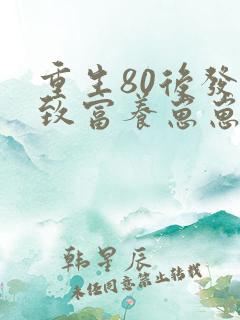 重生80後發
致富養崽崽
韩星辰
未经同意禁止转载